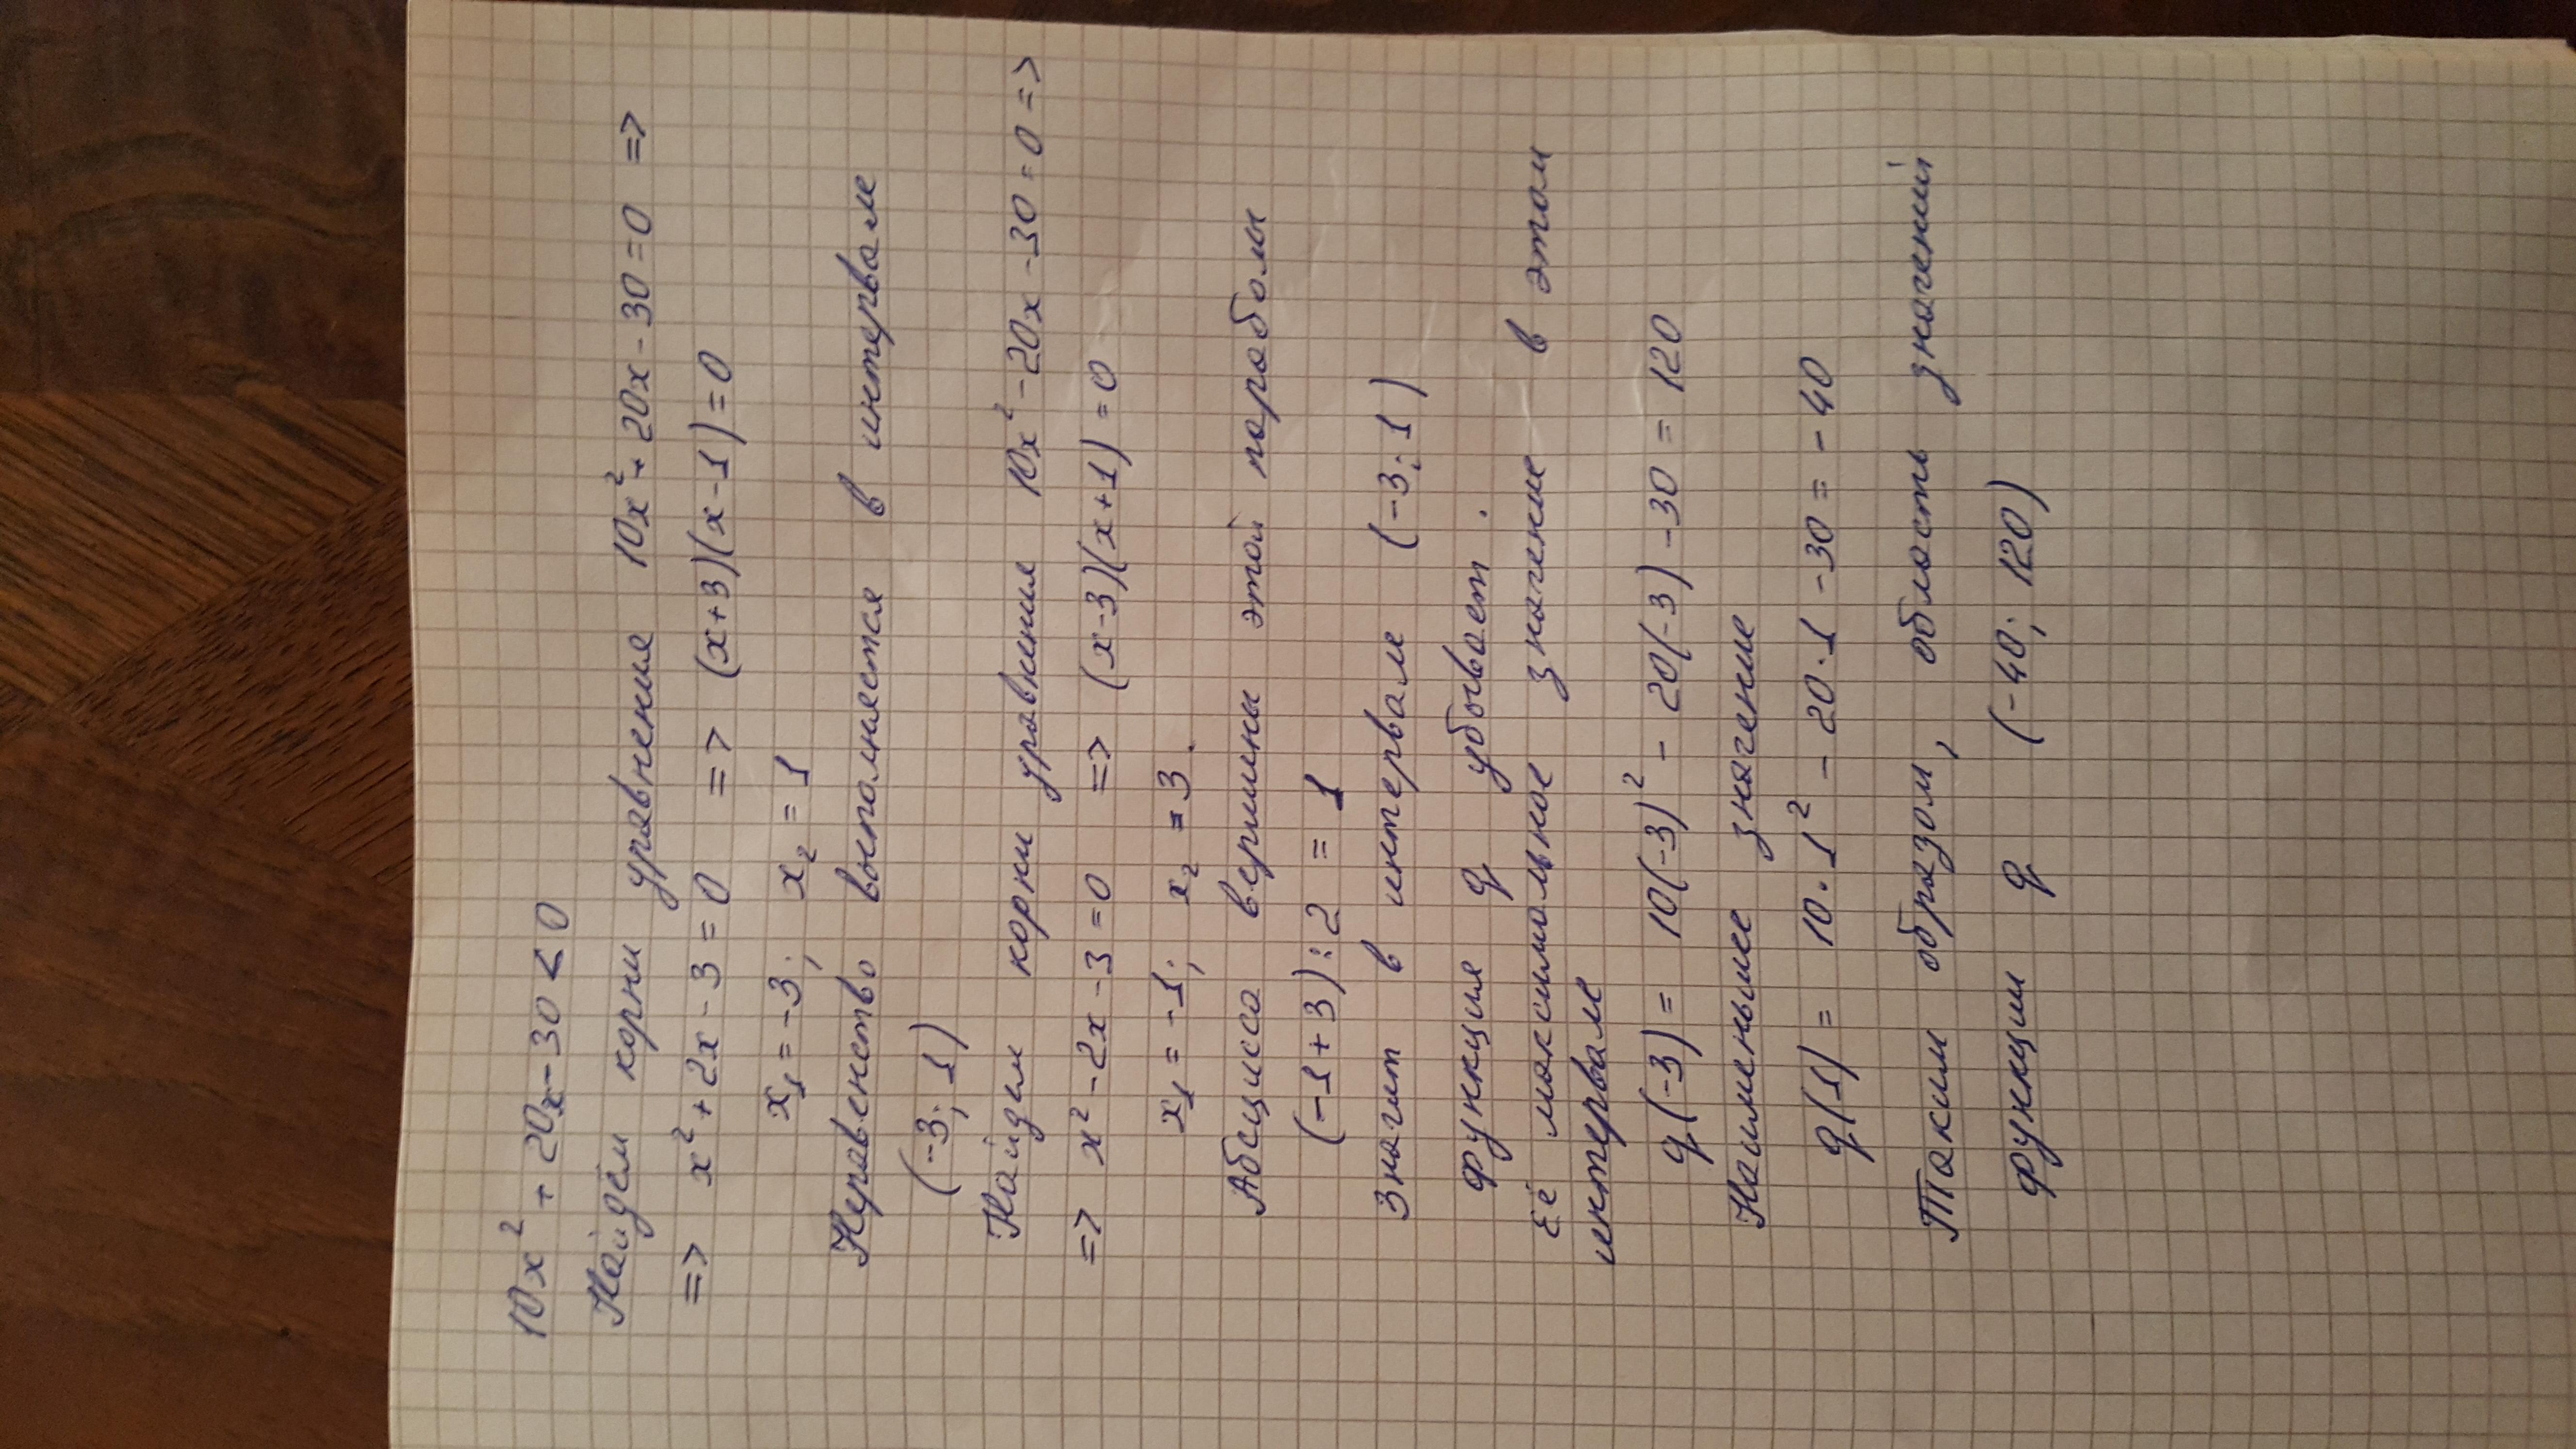 10x² + 20x - 30 < 0
Найдём корни уравнения 10x² + 20x - 30 = 0 =>
=> x² + 2x - 3 = 0 => (x+3)(x-1) = 0
x₁ = -3; x₂ = 1
Неравенство выполняется в интервале
(-3; 1)
Найдем корни уравнения 10x² - 20x - 30 = 0 =>
=> x² - 2x - 3 = 0 => (x-3)(x+1) = 0
x₁ = -1; x₂ = 3.
Абсцисса вершины этой параболы
(-1+3):2 = 1
Значит в интервале (-3; 1)
функция q убывает.
Её максимальное значение в этом
интервале
q(-3) = 10(-3)² - 20(-3) - 30 = 120
Наименьшее значение
q(1) = 10·1² - 20·1 - 30 = - 40
Таким образом, область значений
функции q (-40; 120)